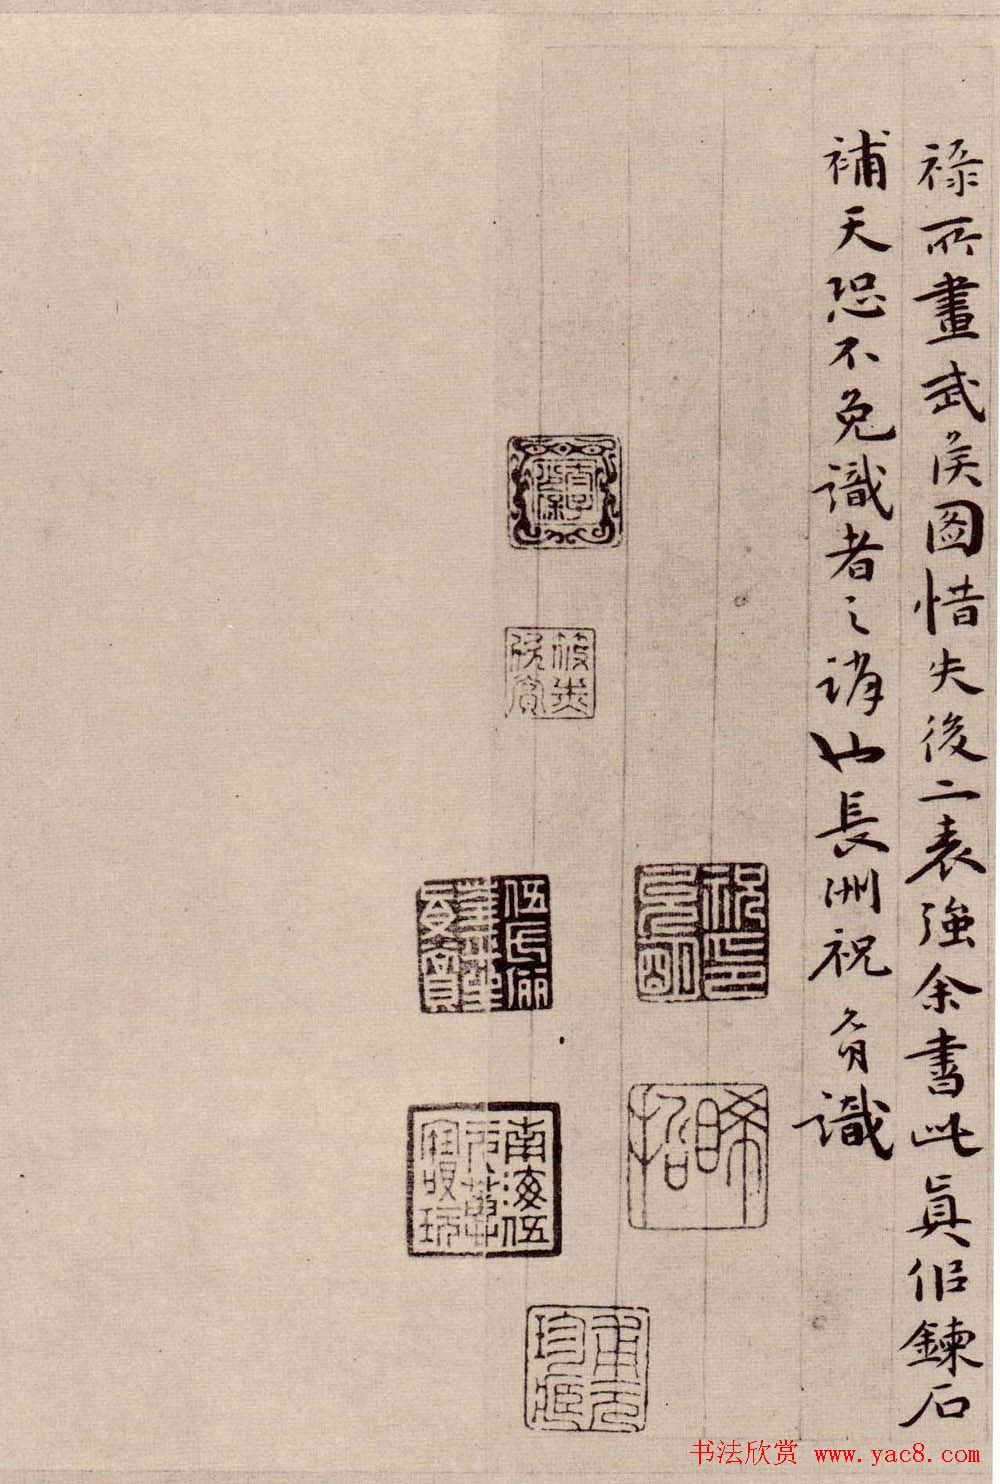 祿所畫武侯圖惜失後二表強余書此真似鍊石
補天恐不免識者之誚也長洲祝允明識
祝印允明
南海伍元蕙
书法欣赏 www.yac8.com